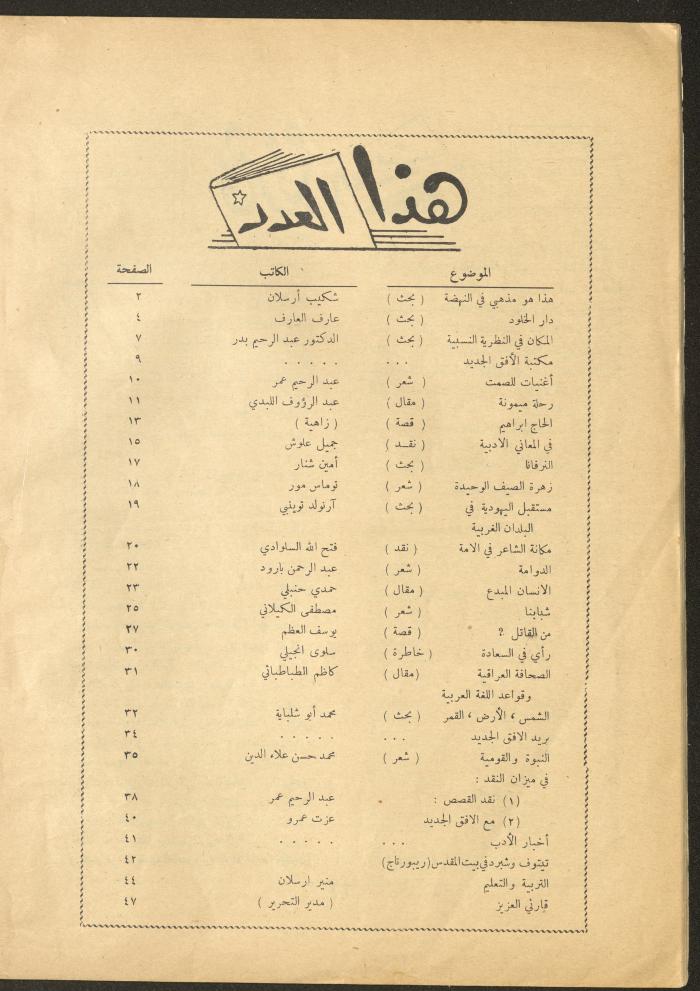 هذا العدد
الموضوع الكاتب الصفحة
هذا هو مذهبي في النهضة ( بحث ) شكيب أرسلان ٢
دار الخلود ( بحث ) عارف العارف ٤
المكان في النظرية النسبية ( بحث ) الدكتور عبد الرحيم بدر ٧
مكتبة الأفق الجديد . . . . . . . . ٩
أغنيات للصمت ( شعر ) عبد الرحيم عمر ١٠
رحلة ميمونة ( مقال ) عبد الرؤوف اللبدي ١١
الحاج ابراهيم ( قصة ) ( زاهية ) ١٣
في المعاني الادبية ( نقـد ) جميل علوش ١٥
النرفانا ( بحث ) أمين شنار ١٧
زهرة الصيف الوحيدة ( شعر ) توماس مور ١٨
مستقبل اليهودية في ( بحث ) آرنولد توينبي ١٩
البلدان الغربية
مكانة الشاعر في الامة ( نقد ) فتح الله السلوادي ٢٠
الدوامة ( شعر ) عبد الرحمن بارود ٢٢
الانسان المبدع ( مقال ) حمدي حنبلي ٢٣
شبابنا ( شعر ) مصطفى الكيلاني ٢٥
من القاتل ؟ ( قصة ) يوسف العظم ٢٧
رأي في السعادة ( خاطرة ) سلوى انجيلي ٣٠
الصحافة العراقية (مقال ) كاظم الطباطبائي ٣١
وقواعد اللغة العربية
الشمس ، الأرض ، القمر ( بحث ) محمد أبو شلباية ٣٢
بريد الافق الجديد . . . . . . . . ٣٤
النبوة والقومية ( شعر ) محمد حسن علاء الدين ٣٥
في ميزان النقد :
(١) نقد القصص : عبد الرحيم عمر ٣٨
(٢) مع الافق الجديد عزت عمرو ٤٠
أخبار الأدب . . . . . . . . ٤١
تيتوف وشبرد في بيت المقدس (ريبورتاج) ٤٢
التربية والتعليم منير ارسلان ٤٤
قارئي العزيز ( مدير التحرير ) ٤٧